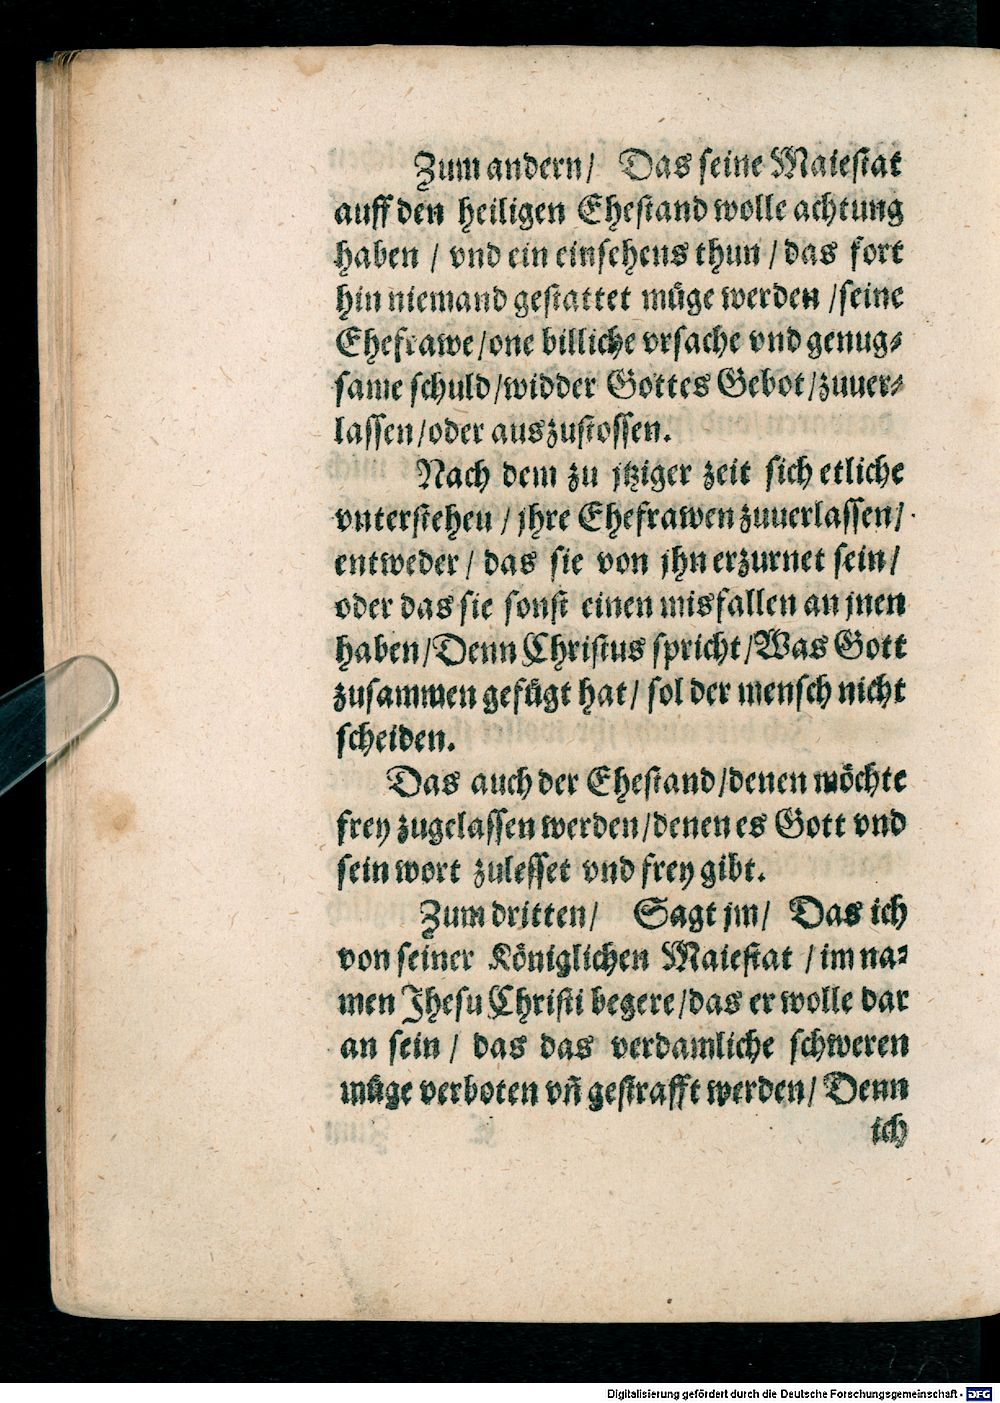 Zum andern/ Das seine Maiestat
auff den heiligen Ehestand wolle achtung
haben / vnd ein einsehens thun / das fort
hin niemand gestattet müge werden /seine
Ehefrawe/one billiche vrsache vnd genug⸗
same schuld/widder Gottes Gebot/zuuer⸗
lassen/oder auszustossen.
Nach dem zu jtziger zeit sich etliche
vnterstehen / jhre Ehefrawen zuuerlassen/
entweder / das sie von jhn erzurnet sein/
oder das sie sonst einen misfallen an jnen
haben/Denn Christus spricht/Was Gott
zusammen gefügt hat/ sol der mensch nicht
scheiden.
Das auch der Ehestand/denen möchte
frey zugelassen werden/denen es Gott vnd
sein wort zulesset vnd frey gibt.
Zum dritten/ Sagt jm/ Das ich
von seiner Königlichen Maiestat / im na⸗
men Jhesu Christi begere/das er wolle dar
an sein / das das verdamliche schweren
müge verboten vñ gestrafft werden/ Denn
ich
Digitalisierung gefördert durch die Deutsche Forschungsgemeinschaft - DFG